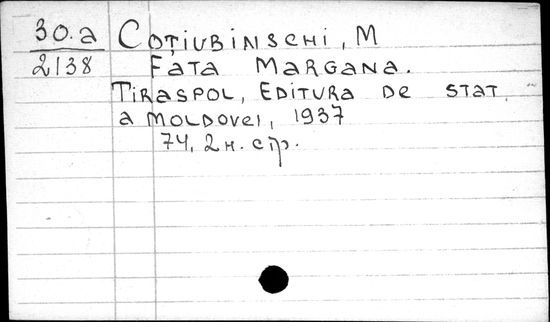 30.a Coțiubinschi, M
2138 Fata Margana.
Tiraspol, Editura de stat
a Moldovei, 1937
74, 2 н. стр.